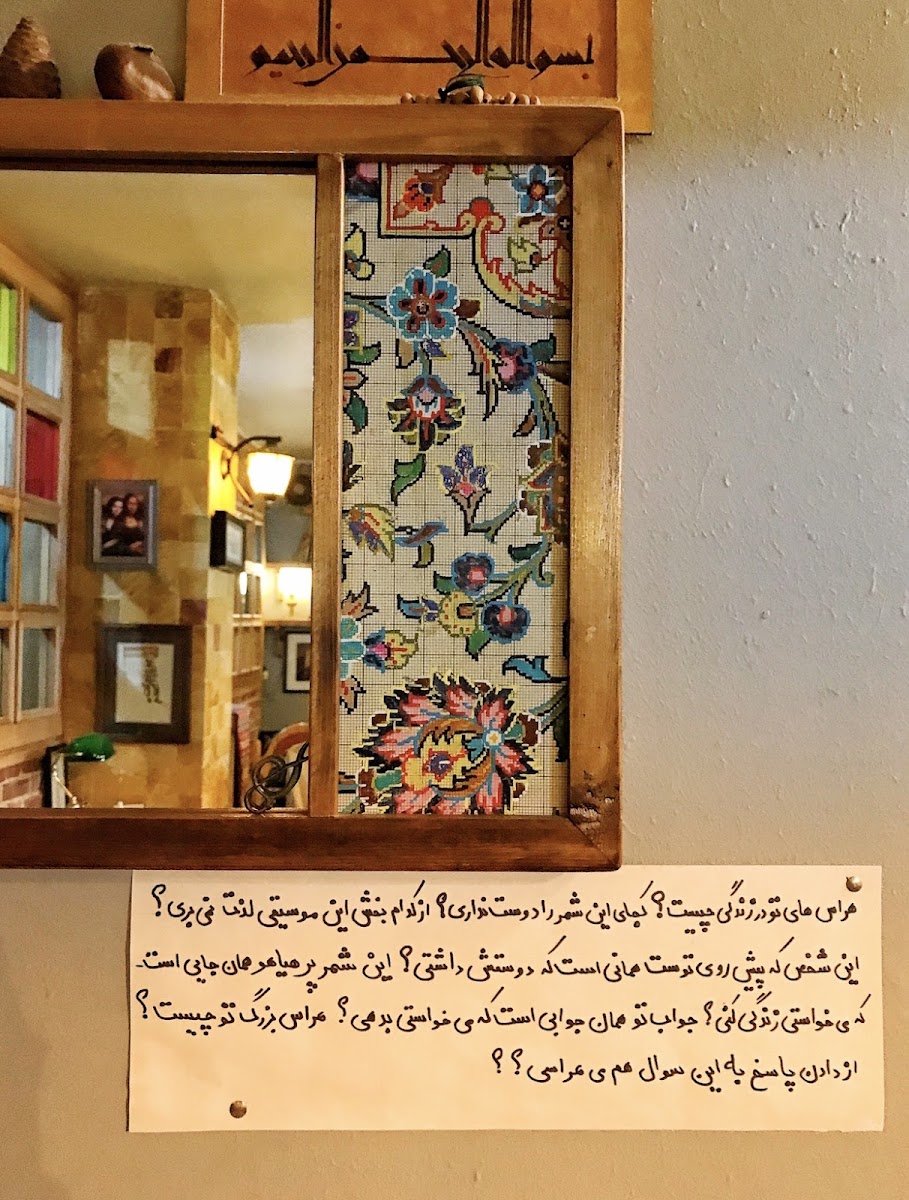 بسم الله الرحمن الرحیم
هراس های تو در زندگی چیست؟ کجای این شهر را دوست نداری؟ از کدام بخش این موسیقی لذت نمی بری؟
این شخص که پیش روی توست همانی است که دوستش داشتی؟ این شهر پر هیاهو همان جایی است.
که می خواستی زندگی کنی؟ جواب تو همان جوابی است که می خواستی بدهی؟ هراس بزرگ تو چیست؟
از دادن پاسخ به این سوال هم می هراسی؟ ؟